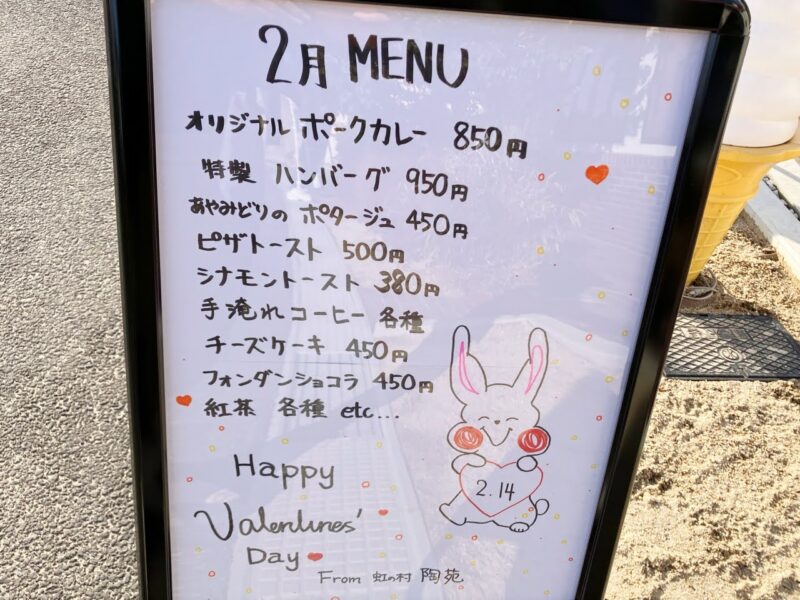 2月 MENU
オリジナル ポークカレー 850円
特製 ハンバーグ 950円
あやみどりの ポタージュ 450円
ピザトースト 500円
シナモントースト 380円
手淹れコーヒー 各種
チーズケーキ 450円
フォンダンショコラ 450円
紅茶 各種 etc...
2.14
Happy
Valentines'
Day
From 虹の村 陶苑